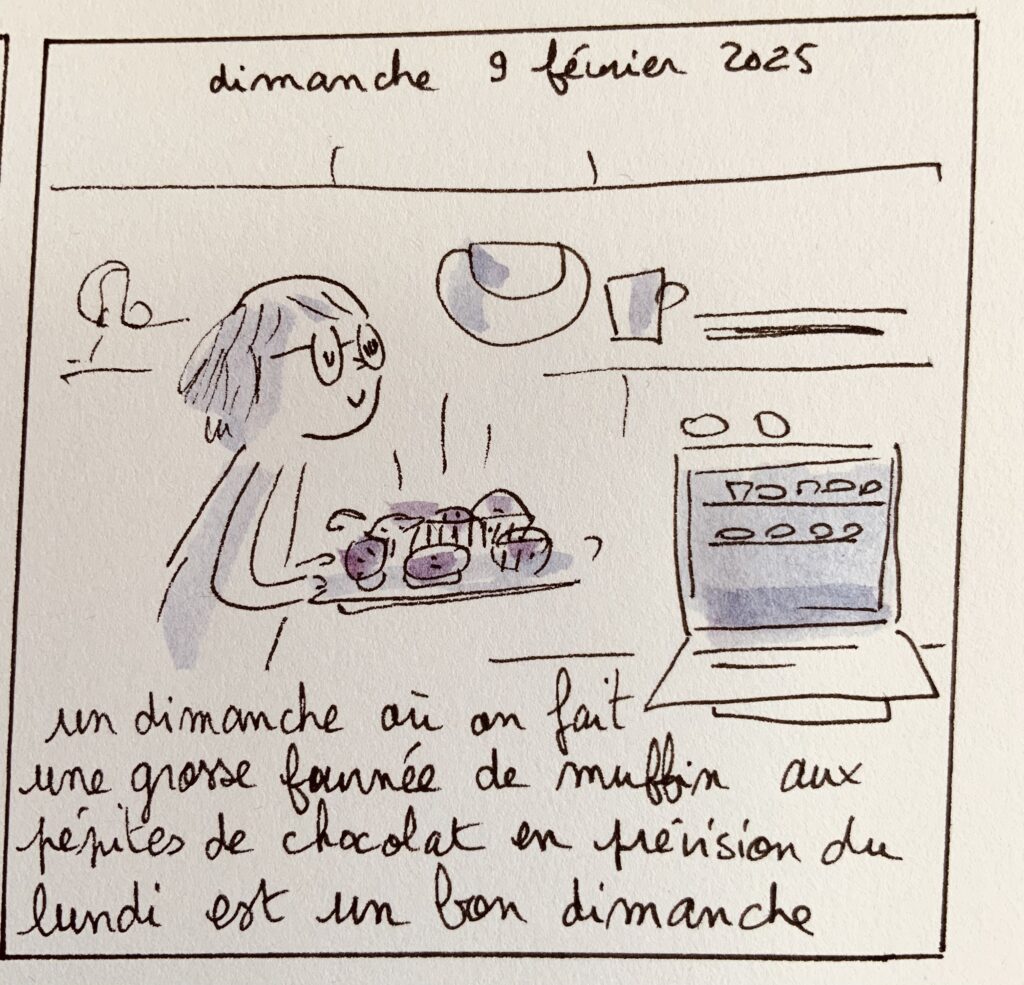 dimanche 9 février 2025
un dimanche où on fait
une grosse fournée de muffin aux
pépites de chocolat en prévision du
lundi est un bon dimanche